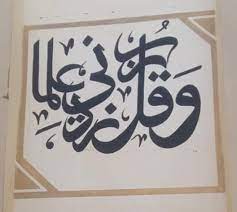 وَقُل رب زدني علما